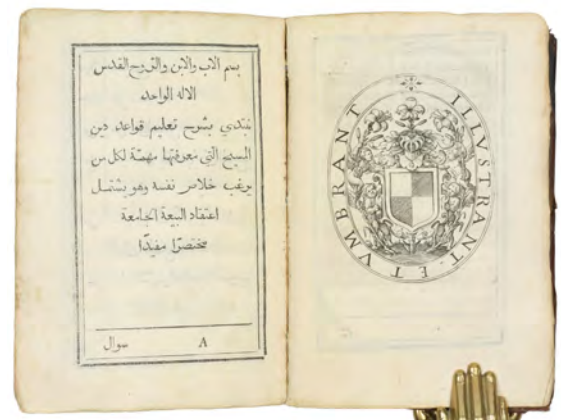 بسم الاب والابن والروح القدس
الاله الواحد
نبتدي بشرح تعليم قواعد دين
المسيح التي معرفتها مهمّة لكل من
يرغب خلاص نفسه وهو يشتمل
اعتقاد البيعة الجامعة
مختصرًا مفيدًا
A سوال
ILLVSTRANT · ET VMBRANT